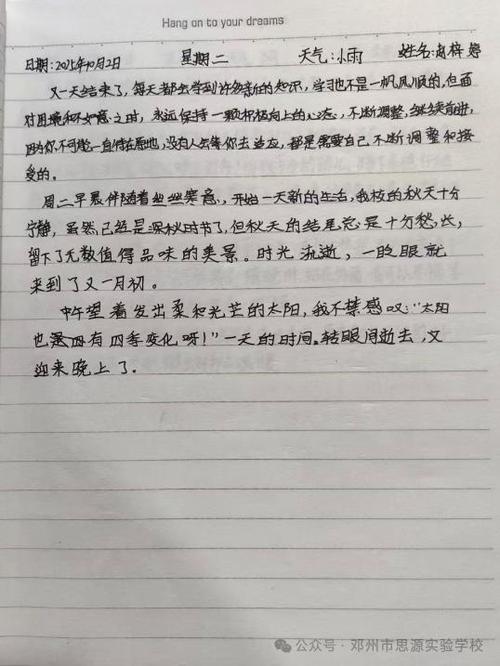 Hang on to your dreams
日期:2025年10月2日 星期二 天气:小雨 姓名:肖梓婷
又一天结束了,每天都会学到许多新的知识,学习也不是一帆风顺的,但面
对困境和不如意之时,永远保持一颗积极向上的心态,不断调整,继续前进,
因为你不可能一直待在原地,没有人会等你去适应,都是需要自己不断调整和接
受的。
周二早晨伴随着丝丝寒意,开始一天新的生活,我校的秋天十分
宁静,虽然已经是深秋时节了,但秋天的结尾总是十分悠长,
留下了无数值得品味的美景。时光流逝,一眨眼就
来到了又一月初。
中午望着发出柔和光芒的太阳,我不禁感叹:“太阳
也有四季变化呀!”一天的时间,转眼间逝去,又
迎来晚上了.
公众号·邓州市思源实验学校